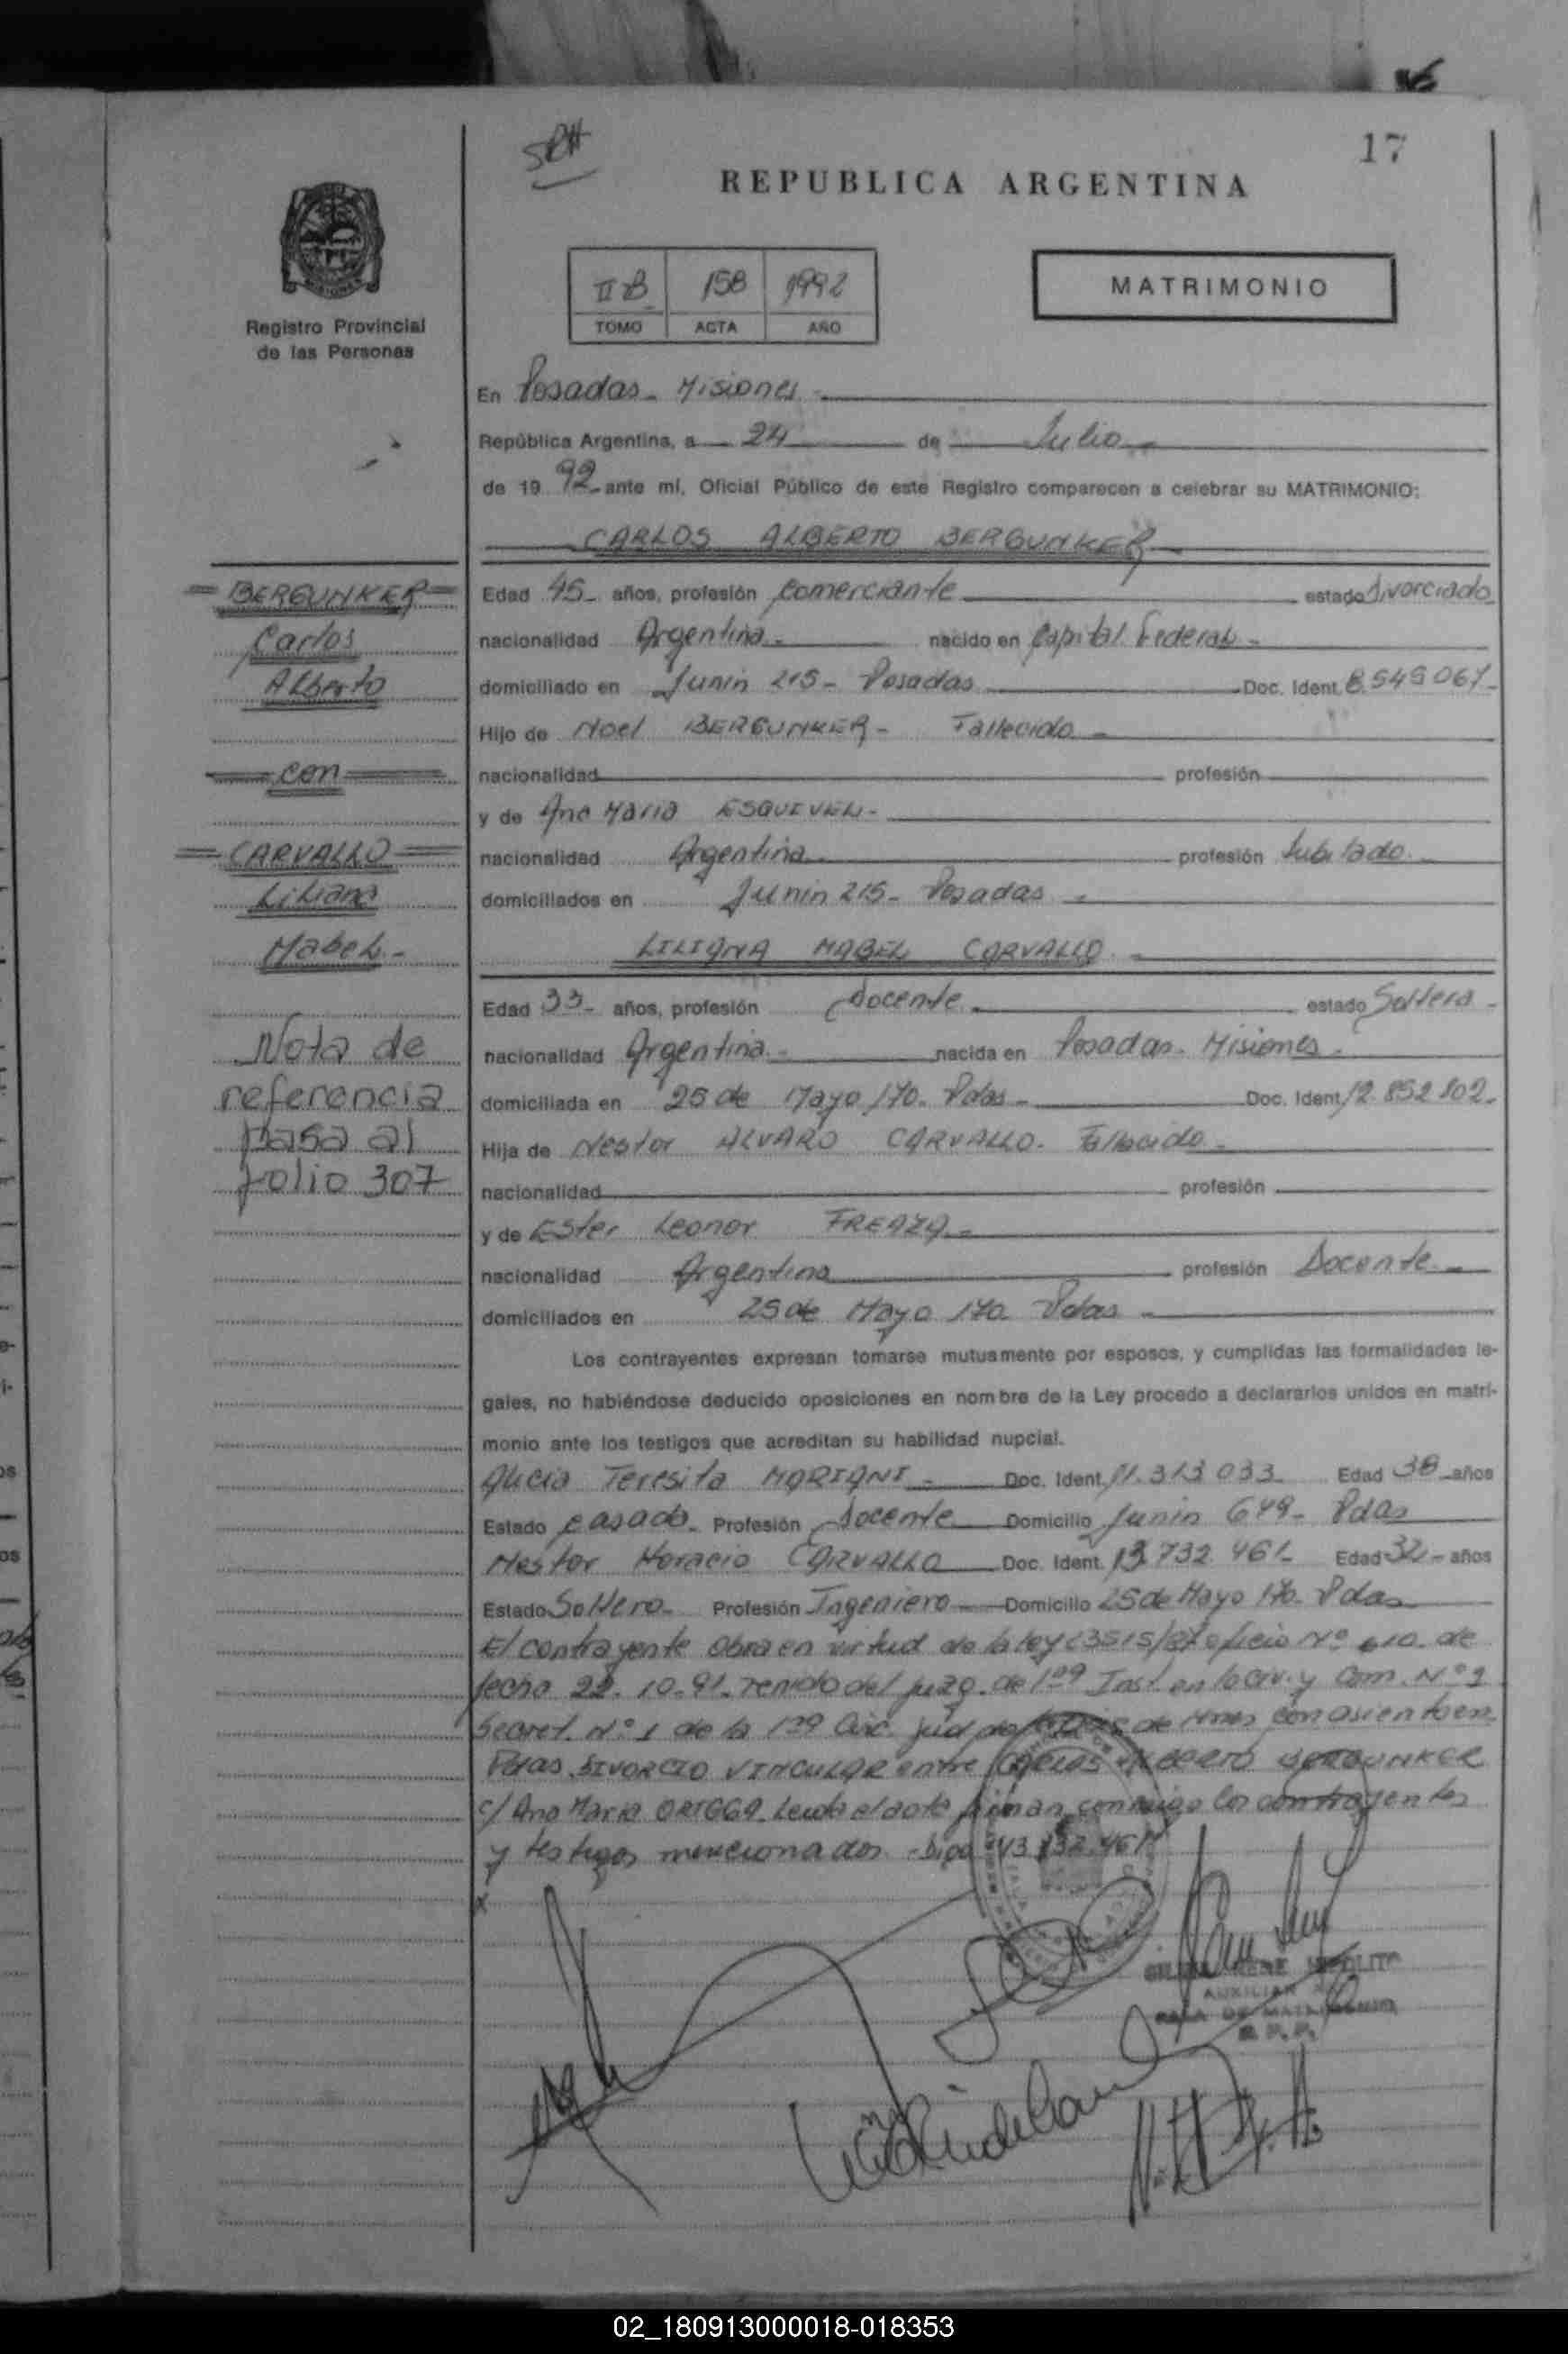 17
REPUBLICA ARGENTINA
MATRIMONIO
II B 158 1992
TOMO ACTA AÑO
Registro Provincial
de las Personas
En Posadas - Misiones -
República Argentina, a 24 de Julio -
de 19 92 ante mí, Oficial Público de este Registro comparecen a celebrar su MATRIMONIO:
CARLOS ALBERTO BERGUNKER -
= BERGUNKER =
Carlos
Alberto
= con =
= CARVALLO =
Liliana
Mabel. -
Nota de
referencia
pasa al
folio 307
Edad 45 - años, profesión Comerciante estado divorciado
nacionalidad Argentina - nacido en Capital Federal -
domiciliado en Junin 215 - Posadas Doc. Ident. 8.549.067 -
Hijo de Noel BERGUNKER - Fallecido -
nacionalidad profesión
y de Ana Maria ESQUIVEL -
nacionalidad Argentina profesión Jubilado.
domiciliados en Junin 215 - Posadas -
LILIANA MABEL CARVALLO. -
Edad 33 - años, profesión Docente. estado Soltera -
nacionalidad Argentina. - nacida en Posadas - Misiones.
domiciliada en 25 de Mayo 170. Pdas - Doc. Ident. 12.852.802.
Hija de Nestor ALVARO CARVALLO. Fallecido -
nacionalidad profesión
y de Ester Leonor FREAZA. -
nacionalidad Argentina profesión Docente. -
domiciliados en 25 de Mayo 170. Pdas -
Los contrayentes expresan tomarse mutuamente por esposos, y cumplidas las formalidades le-
gales, no habiéndose deducido oposiciones en nombre de la Ley procedo a declararlos unidos en matri-
monio ante los testigos que acreditan su habilidad nupcial.
Alicia Teresita MARIANI - Doc. Ident. 11.313.033 - Edad 38 años
Estado casada - Profesión Docente Domicilio Junin 649 - Pdas
Nestor Horacio CARVALLO Doc. Ident. 13.732.461 - Edad 32 - años
Estado Soltero - Profesión Ingeniero Domicilio 25 de Mayo 170. Pdas
El contrayente Obra en virtud de la ley 23515/87 oficio Nº 610 de
fecha 22.10.91. remido del juzg. de 1ra Inst. en lo civ. y Com. Nº 1
Secret. Nº 1 de la 1ra Circ. jud de de Mnes con asiento en
Pdas DIVORCIO VINCULAR entre CARLOS ALBERTO BERGUNKER
c/ Ana Maria ORTEGA. Leida el acta firman conmigo los contrayentes
y testigos mencionados - Digo
AUXILIAR
SALA DE MATRIMONIO
R. P. P.
02_180913000018-018353